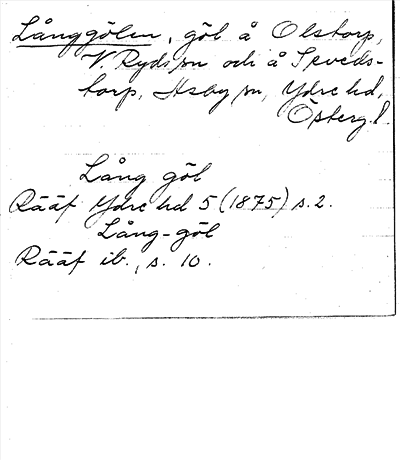 Långgölen, göl å Olstorp,
V. Ryds sn och å Svveds-
torp, Asby sn, Ydre hd,
Österg. l.
Lång göl
Rääf Ydre hd 5 (1875) s. 2.
Lång-göl
Rääf ib., s. 10.